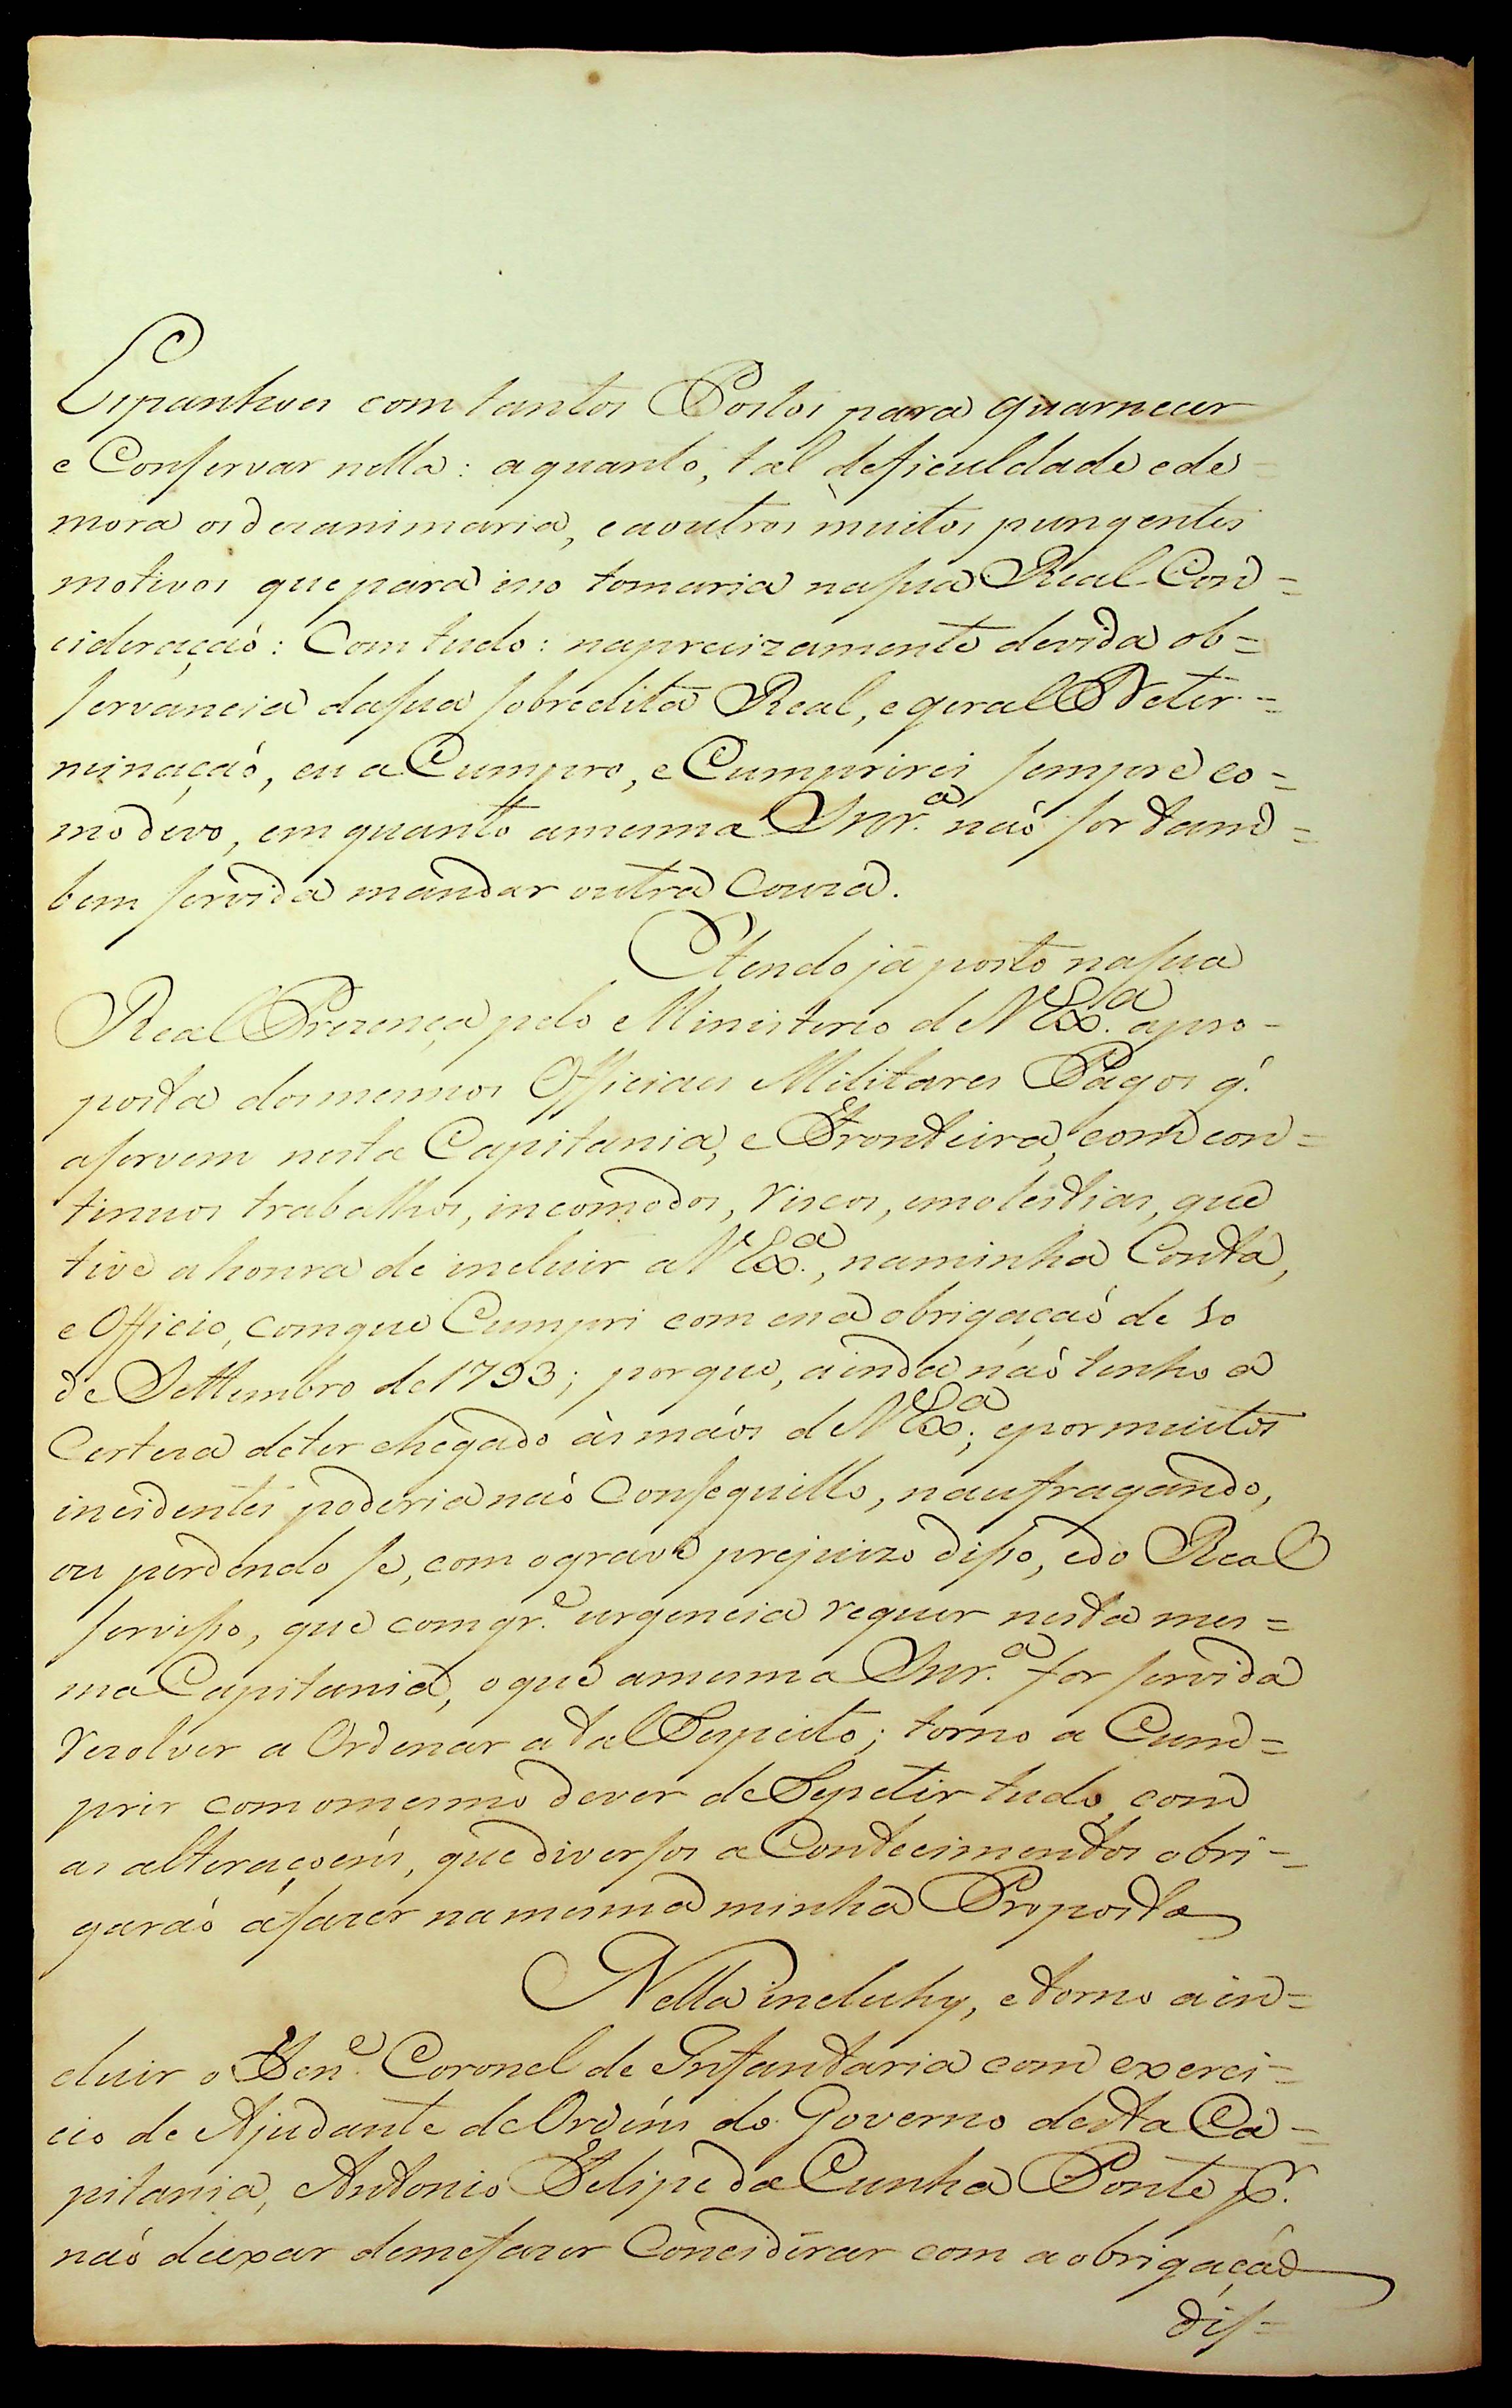 Espanhoes com tantos Postos para guarnecer
e Conservar nella: aquanto, tal deficuldade e de=
mora os dezanimaria, e a outros muitos pungentes
motivos que para isso tomaria na sua Real Con=
cideraçaõ: Com tudo: na precizamente devida ob=
servancia da sua sobredita Real, e geral Deter=
minaçaõ, eu a Cumpro, e Cumprirei sempre co=
mo devo, em quanto a mesma Snr.ª naõ for tam=
bem servida mandar outra Couza.
E tendo já posto na sua
Real Prezença pelo Ministerio de V Ex.ª a pro-
posta dos mesmos Officiaes Militares Pagos q.
a servem nesta Capitania, e Fronteira, com con=
tinuos trabalhos, incomodos, riscos, e molestias, que
tive a honra de incluir a V Ex.ª, na minha Conta,
e Officio, com que Cumpri com essa obrigaçaõ de 10
de Settembro de 1793; porque, ainda naõ tenho a
Certeza de ter chegado às maõs de V Ex.ª; e por muitos
incidentes poderia naõ Conseguillo, naufragando,
ou perdendo se, com o grave prejuizo disso, e do Real
servisso, que com gr.e urgencia requer nesta mes=
ma Capitania, o que a mesma Snr.ª for servida
rezolver a Ordenar a tal Respeito; torno a Cum=
prir com o mesmo dever de Repetir tudo, com
as alteraçoens, que diversos aContecimentos obri=
garaõ á fazer na mesma minha Proposta
Nella incluhy, e torno a in=
cluir o Ten.e Coronel de Infantaria com exerci=
cio de Ajudante de Ordens do Governo desta Ca=
pitania, Antonio Felipe da Cunha Ponte pr.
naõ deixar de me fazer Concidérar com a obrigaçaõ
dis=